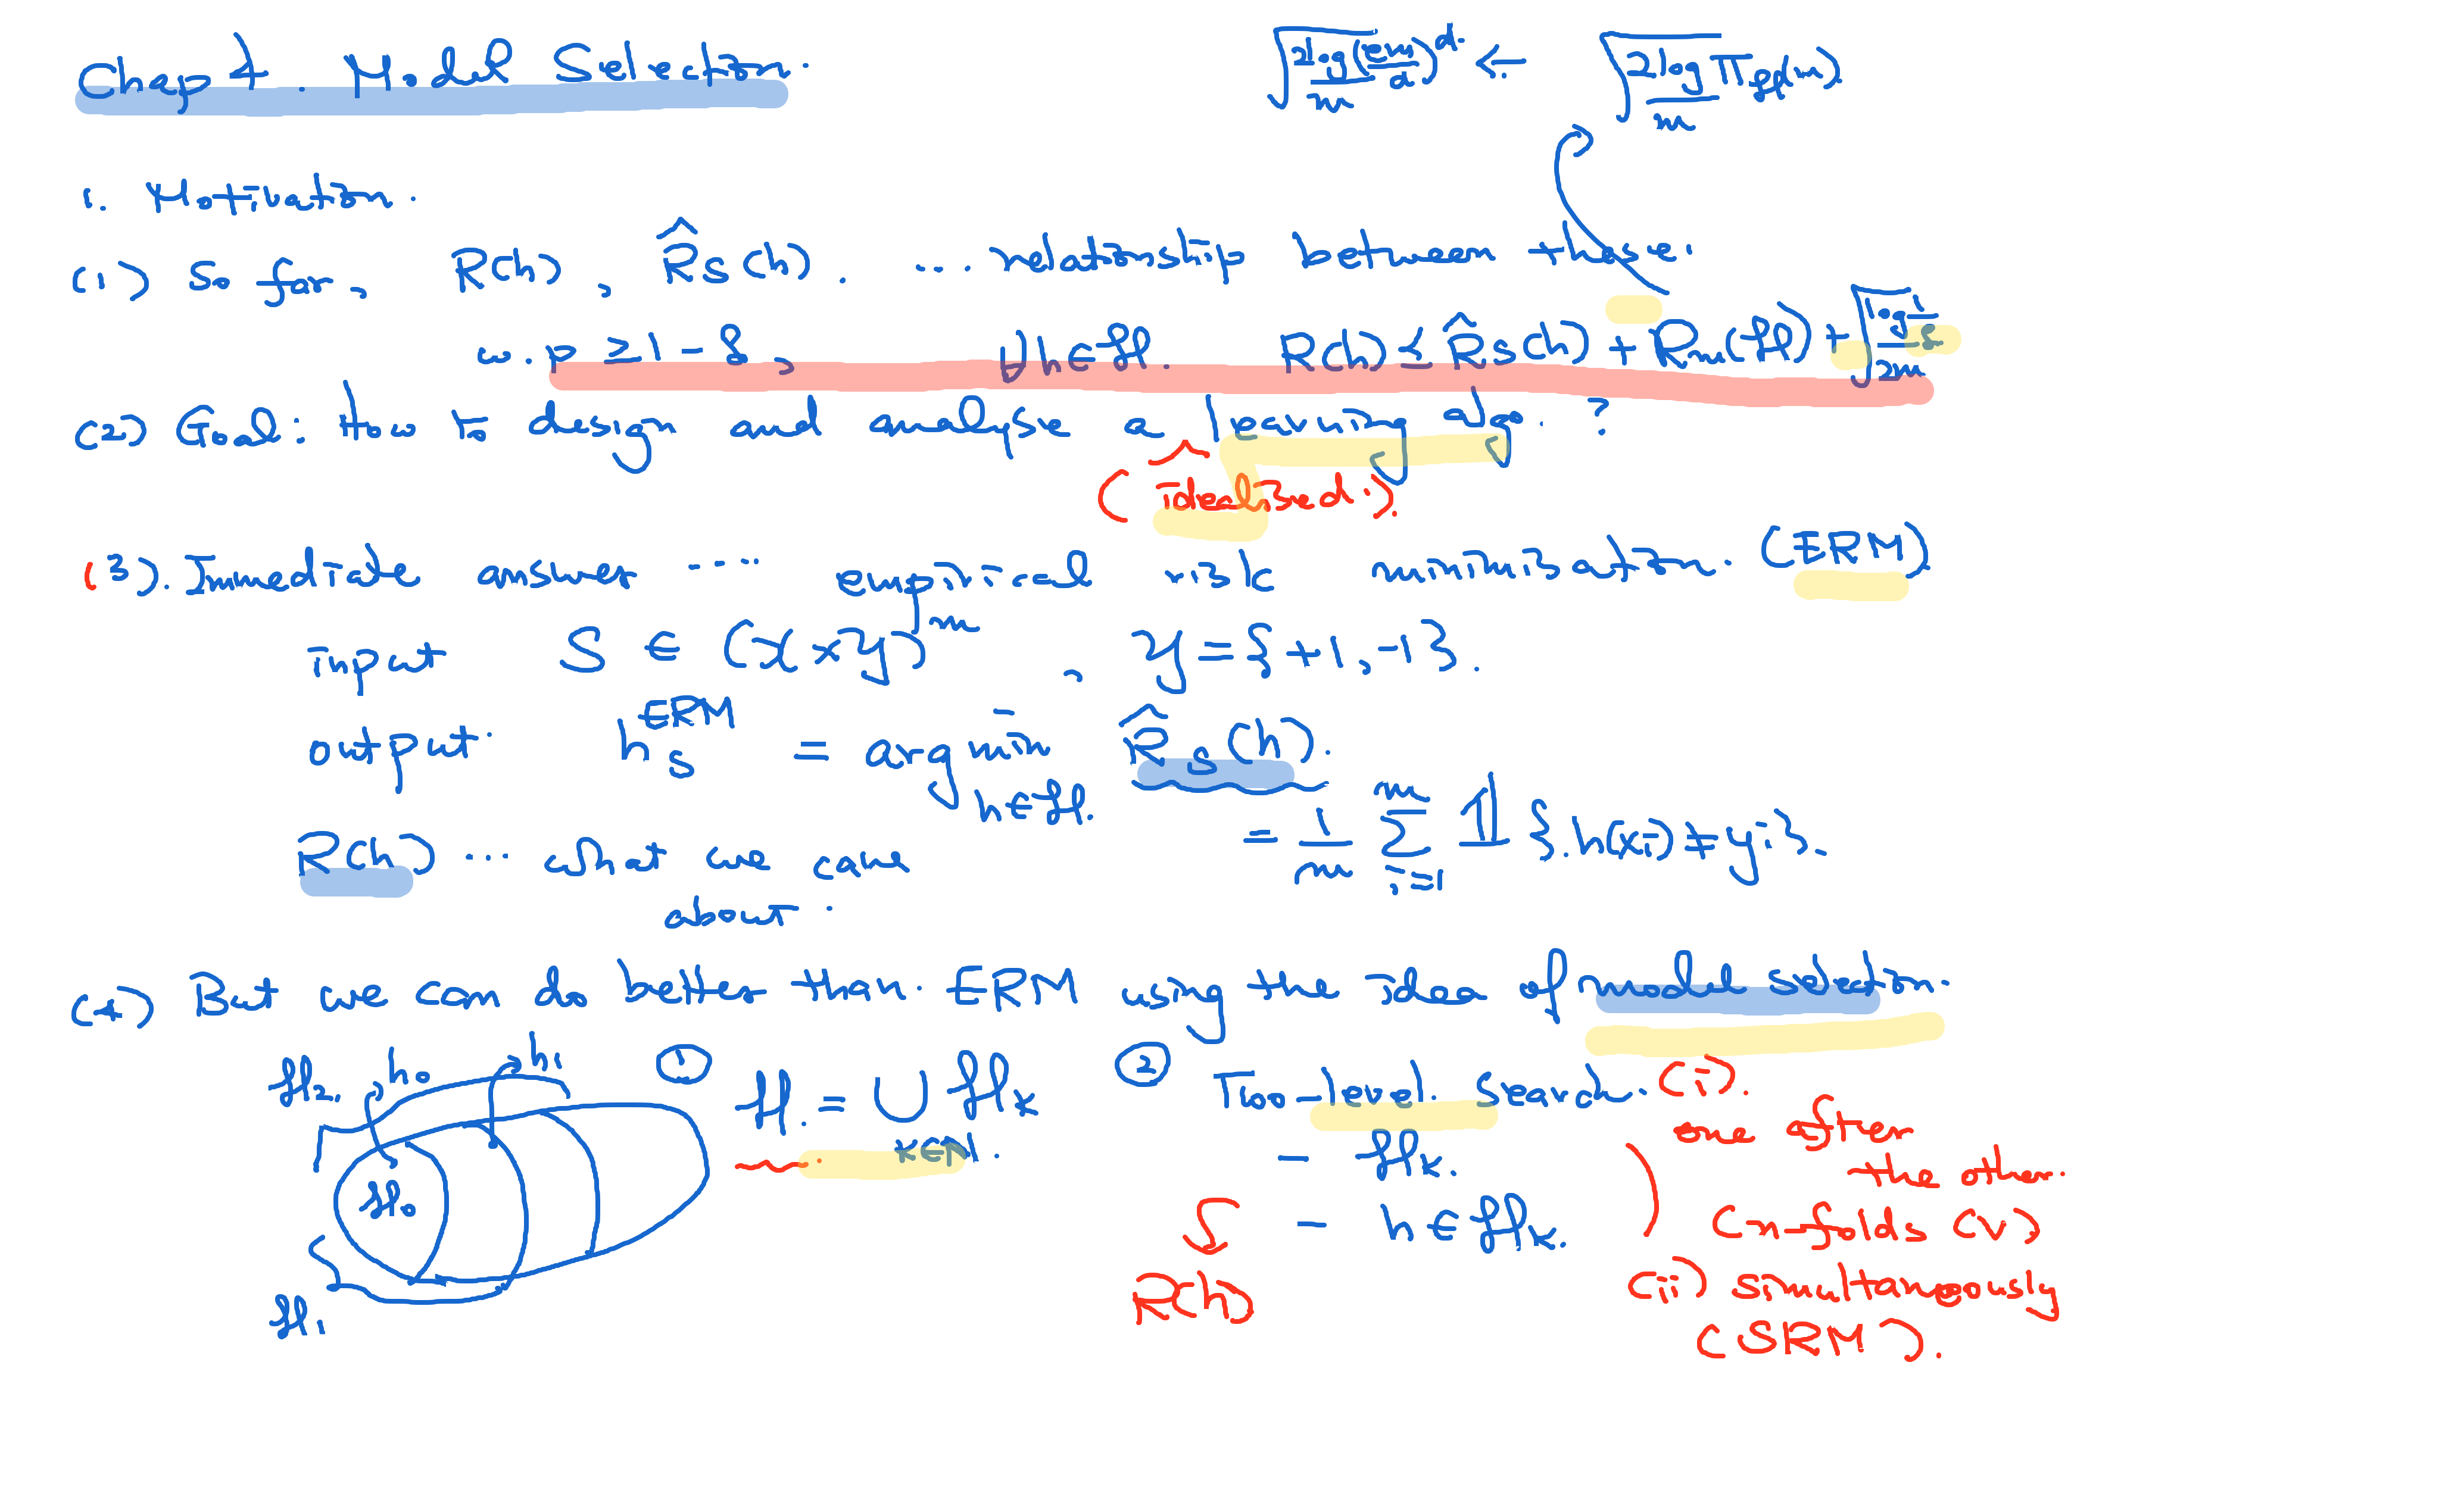 Chap 4. Model Selection.
√(2log(em/d)^d / m) ← √(2log Π_H(m) / m)
1. Motivation.
(1) So far, R(h), R̂_S(h). ... relationship between these.
w.p ≥ 1-δ, ∀h∈H. R(h) ≤ R̂_S(h) + R_m(H) + √(log 1/δ / 2m)
(2) Goal: How to design and analyse a learning algo. ?
(idealised.).
(3). Immediate answer .... empirical risk minimisation. (ERM)
input S ∈ (X×Y)^m, Y = {+1,-1}.
output. h_S^ERM = arg min_{h∈H.} R̂_S(h).
= 1/m Σ_{i=1}^m 𝟙{h(xi) ≠ yi}.
R(h) ... what we care
about.
(4) But we can do better than ERM using the idea of model selection.
H2. h0 h1 ① H. = ∪_{k∈N.} H_k ② Two-level search. (i).
one after
the other.
H0 - H_k.
(n-folds CV)
- h∈H_k.
(ii) simultaneously
(SRM).
R(h)
H1